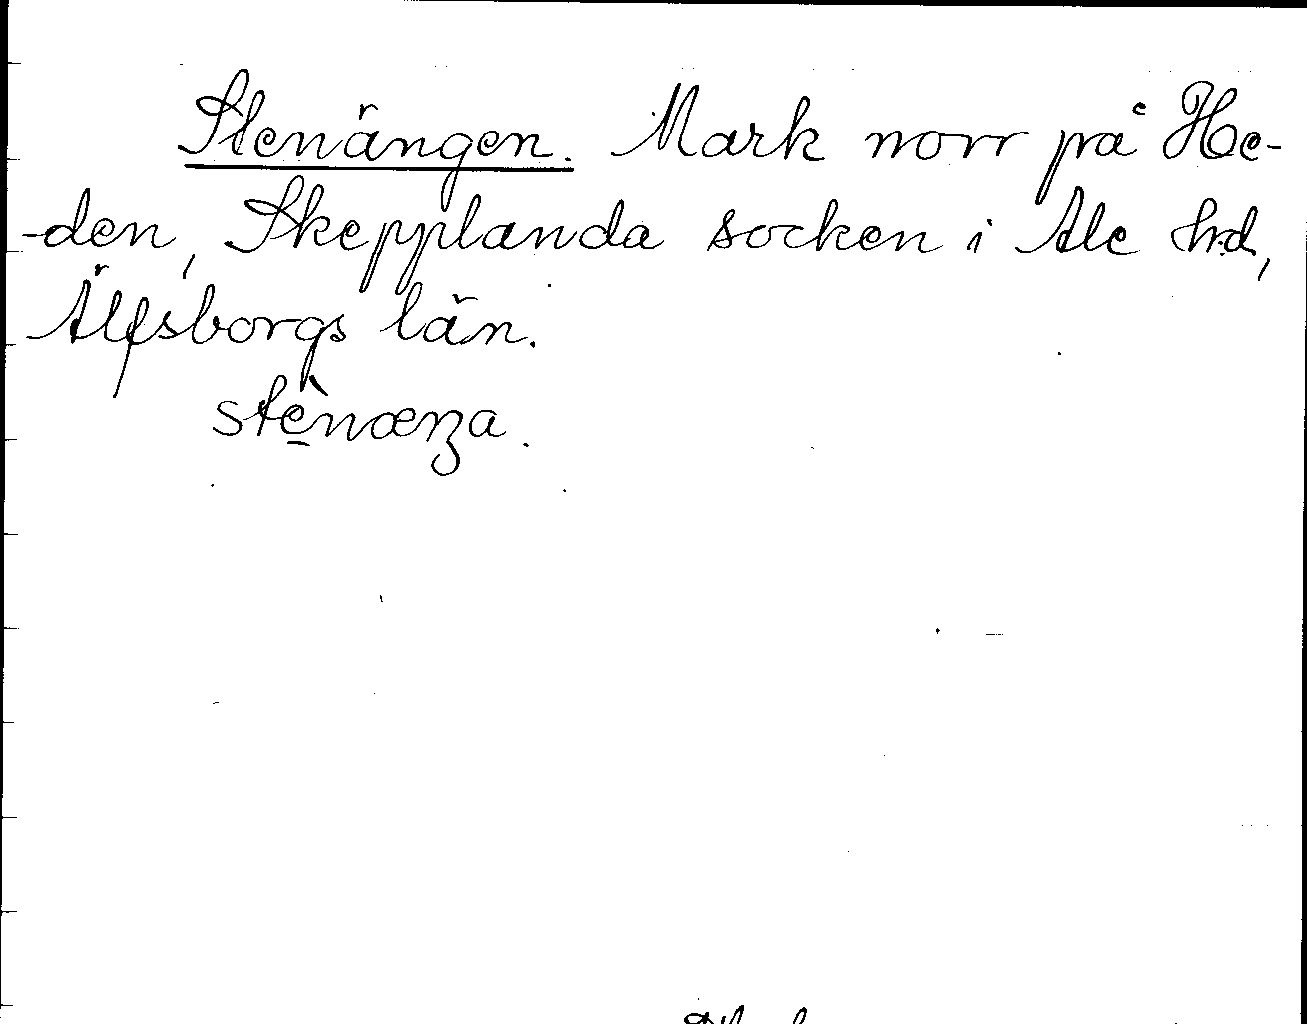 Stenängen. Mark norr på He-
-den, Skepplanda socken i Ale hd,
Älfsborgs län.
stènæŋa.